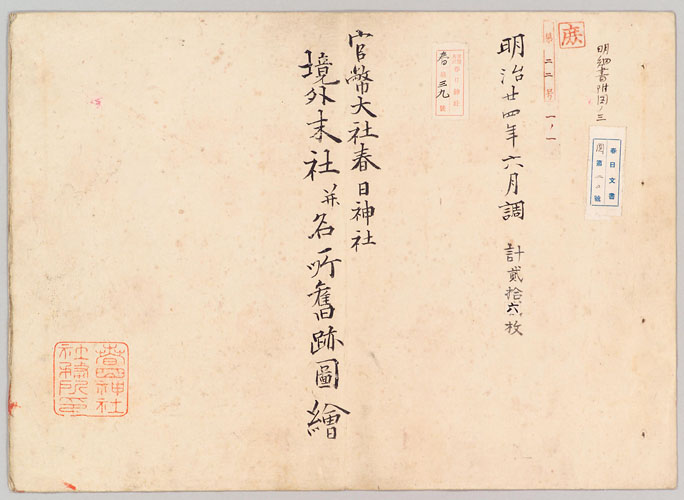 明細書附図ノ三
春日文書
庶
第二二号
一ノ一
明治廿四年六月調
計貳拾六枚
春日神社
春 三九 號
官幣大社春日神社
境外末社并名所舊跡圖繪
春日神社
社務所印